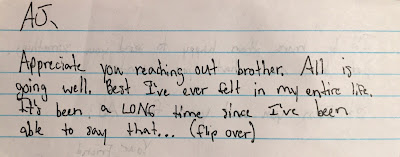 AJ,
Appreciate you reaching out brother. All is
going well. Best I've ever felt in my entire life.
It's been a LONG time since I've been
able to say that... (flip over)